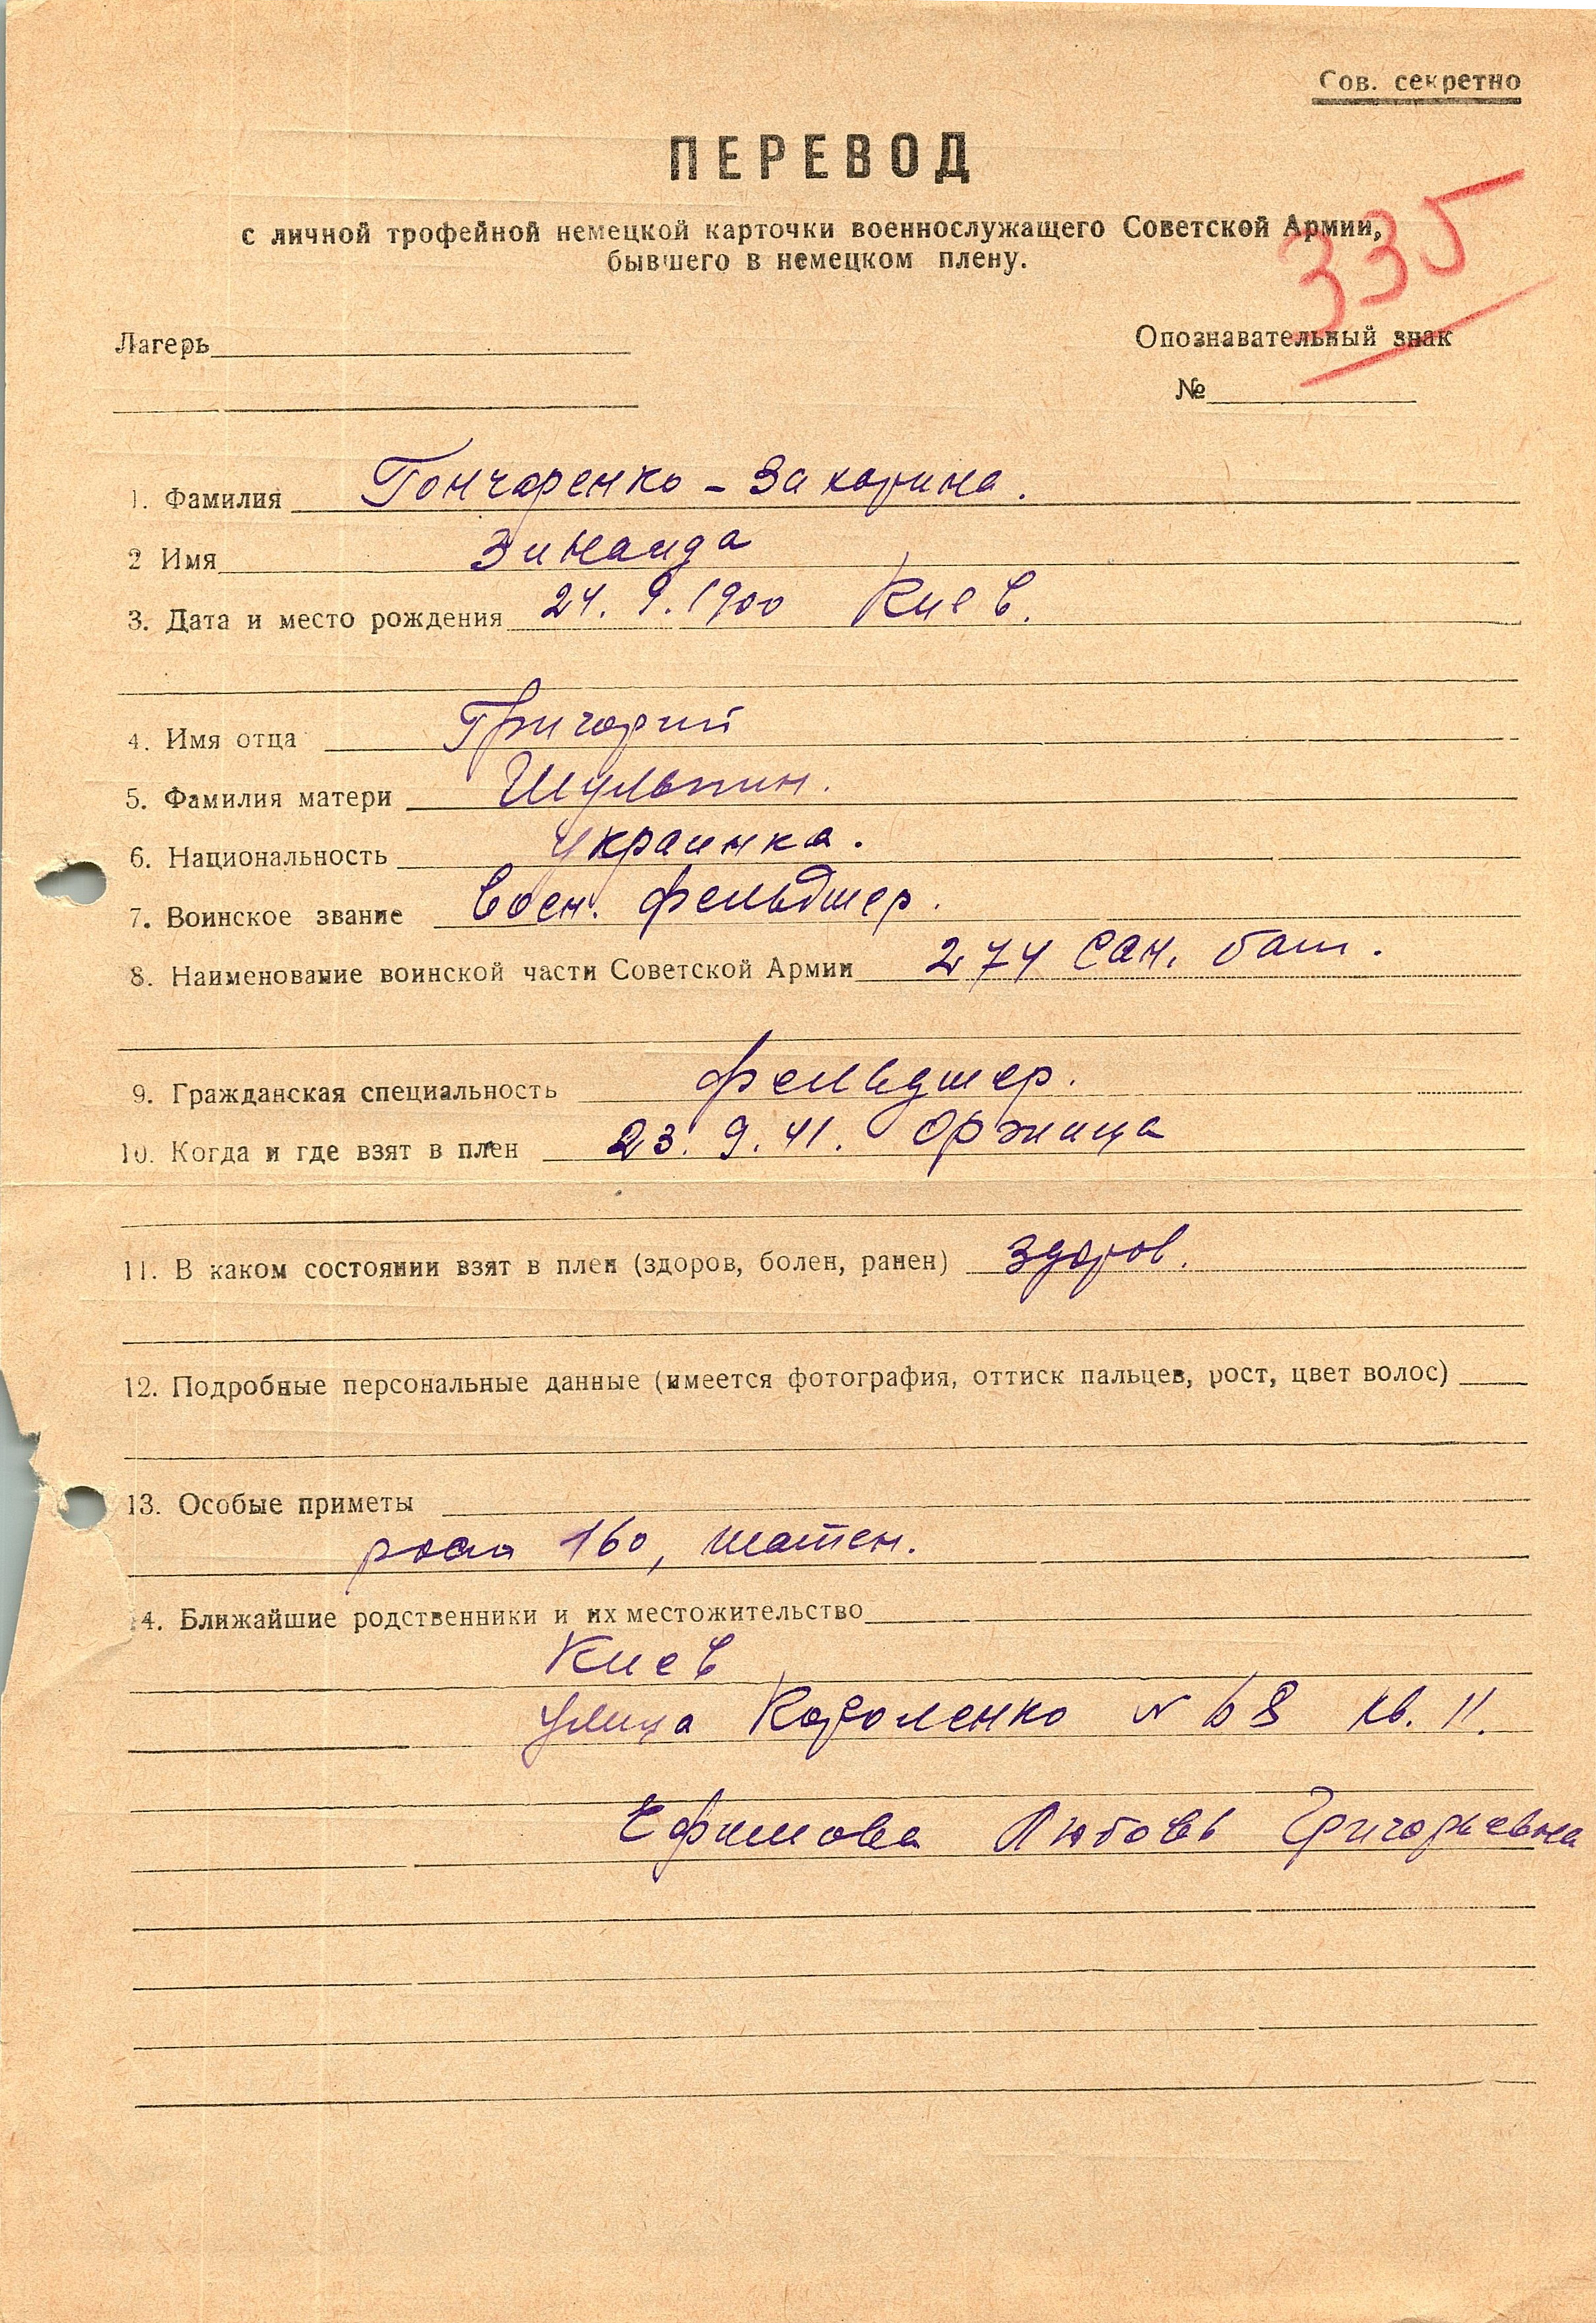 Сов. секретно
ПЕРЕВОД
с личной трофейной немецкой карточки военнослужащего Советской Армии,
бывшего в немецком плену.
335
Лагерь
Опознавательный знак
№
1. Фамилия Гончаренко - Захарина.
2 Имя Зинаида
3. Дата и место рождения 24. 9. 1900 Киев.
4. Имя отца Григорий
5. Фамилия матери Шульпин.
6. Национальность украинка.
7. Воинское звание воен. фельдшер.
8. Наименование воинской части Советской Армии 274 сан. бат.
9. Гражданская специальность фельдшер.
10. Когда и где взят в плен 23. 9. 41. Оржица
11. В каком состоянии взят в плен (здоров, болен, ранен) здоров.
12. Подробные персональные данные (имеется фотография, оттиск пальцев, рост, цвет волос)
13. Особые приметы
рост 160, шатен.
14. Ближайшие родственники и их местожительство
Киев
улица Короленко N 68 кв. 11.
Ефимова Любовь Григорьевна